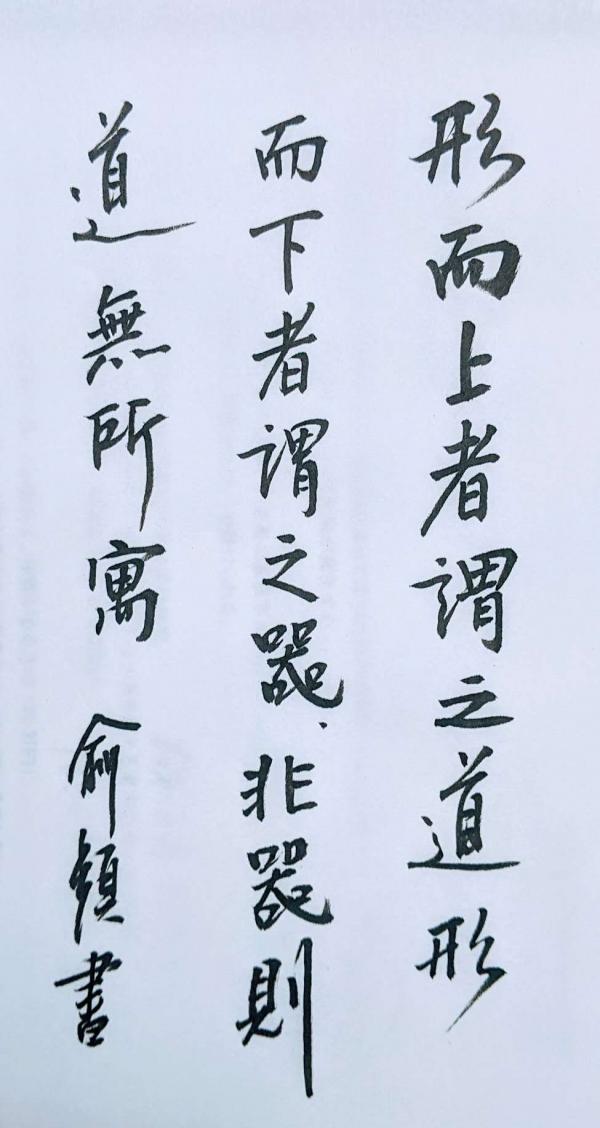 形而上者謂之道形
而下者謂之器、非器則
道無所寓 俞鎮書